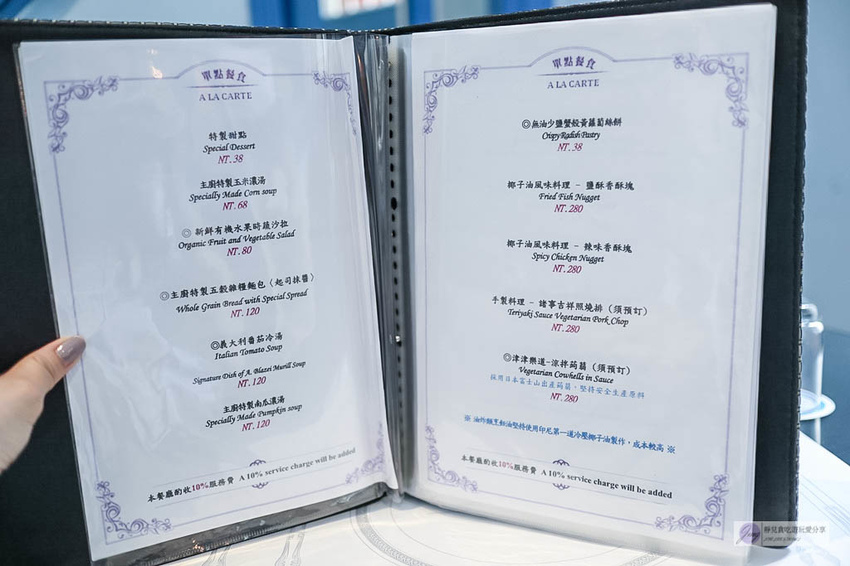 單點餐食
A LA CARTE
特製甜點
Special Dessert
NT.38
主廚特製玉米濃湯
Specially Made Corn soup
NT.68
◎ 新鮮有機水果時蔬沙拉
Organic Fruit and Vegetable Salad
NT.80
◎主廚特製五穀雜糧麵包（起司抹醬）
Whole Grain Bread with Special Spread
NT.120
◎義大利番茄冷湯
Italian Tomato Soup
Signature Dish of A. Blazei Murill Soup
NT.120
主廚特製南瓜濃湯
Specially Made Pumpkin soup
NT.120
本餐廳酌收10%服務費 A 10% service charge will be added
單點餐食
A LA CARTE
◎無油少鹽蟹殼黃蘿蔔絲餅
Crispy Radish Pastry
NT.38
椰子油風味料理 - 鹽酥香酥塊
Fried Fish Nugget
NT.280
椰子油風味料理 - 辣味香酥塊
Spicy Chicken Nugget
NT.280
手製料理 - 諸事吉祥照燒排（須預訂）
Teriyaki Sauce Vegetarian Pork Chop
NT.280
◎津津樂道-涼拌蒟蒻（須預訂）
Vegetarian Cowhells in Sauce
採用日本富士山出產蒟蒻，堅持安全生產原料
NT.280
※ 油炸類烹飪油堅持使用印尼第一道冷壓椰子油製作，成本較高 ※
本餐廳酌收10%服務費 A 10% service charge will be added
靜兒貪吃遊玩愛分享